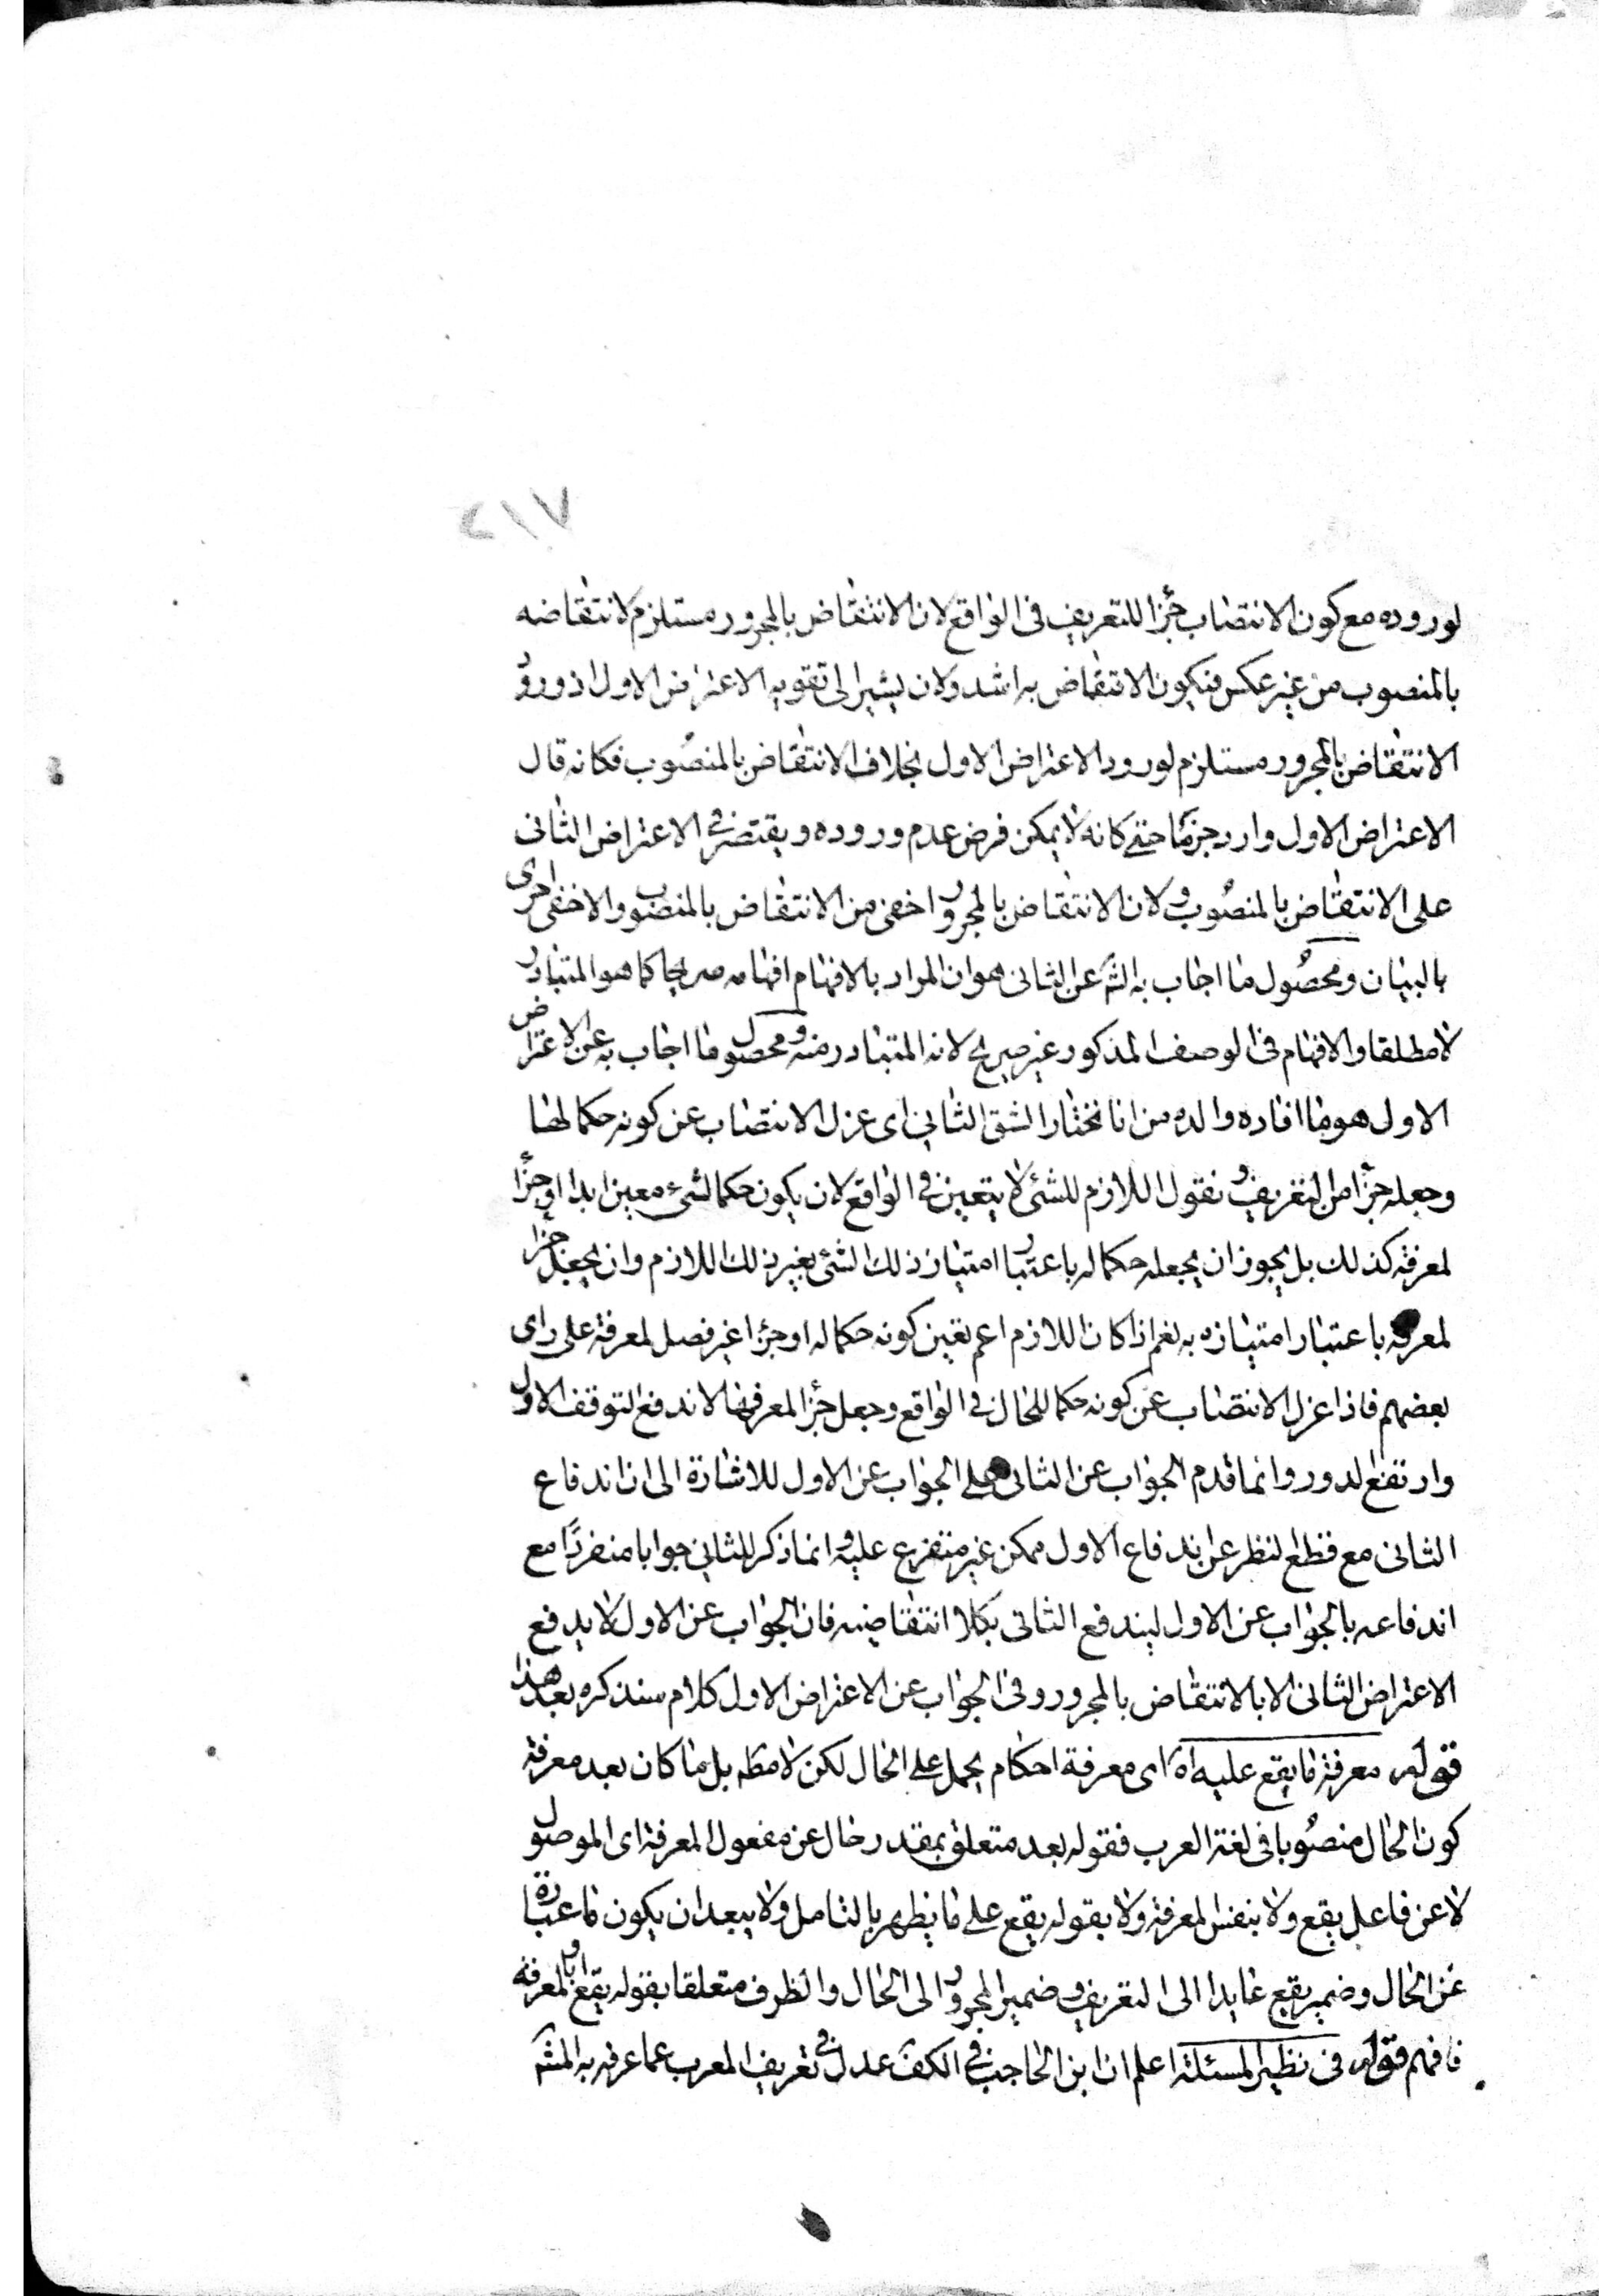 ٢١٧
لوروده مع كون الانتصاب جزأ للتعريف فى الواقع لان الانتقاض بالمجرور مستلزم لانتقاضه
بالمنصوب من غير عكس فيكون الانتقاض به اشد ولان يشير الى تقوية الاعتراض الاول اذ ورود
الانتقاض بالمجرور مستلزم لورود الاعتراض الاول بخلاف الانتقاض بالمنصوب فكانه قال
الاعتراض الاول وارد جزما حتى كانه لا يمكن فرض عدم وروده ويقتصر فى الاعتراض الثانى
على الانتقاض بالمنصوب ولان الانتقاض بالمجرور اخفى من الانتقاض بالمنصوب والاخفى احرى
بالبيان ومحصول ما اجاب به الش عن الثانى هو ان المراد بالافهام افهامه صريحا كما هو المتبادر
لا مطلقا والافهام فى الوصف المذكور غير صريح لانه المتبادر منه ومحصول ما اجاب به عن الاعتراض
الاول هو ما افاده والده من انا نختار الشق الثانى اى عزل الانتصاب عن كونه حكما لها
وجعله جزأ من التعريف ونقول اللازم للشئ لا يتعين فى الواقع لان يكون حكما لشئ معين ابدا او جزأ
لمعرفه كذلك بل يجوز ان يجعله حكما له باعتبار امتياز ذلك الشئ بغير ذلك اللازم وان يجعل جزأ
لمعرفه باعتبار امتيازه به نعم اذا كان اللازم اعم تعين كونه حكما له او جزأ غير فصل لمعرفه على راى
بعضهم فاذا عزل الانتصاب عن كونه حكما للحال فى الواقع وجعل جزأ لمعرفها لاندفع التوقف الاول
وارتفع الدور وانما قدم الجواب عن الثانى على الجواب عن الاول للاشارة الى ان اندفاع
الثانى مع قطع النظر عن اندفاع الاول ممكن غير متفرع عليه وانما ذكر للثانى جوابا منفردًا مع
اندفاعه بالجواب عن الاول ليندفع الثانى بكلا انتقاضيه فان الجواب عن الاول لا يدفع
الاعتراض الثانى الا بالانتقاض بالمجرور وفى الجواب عن الاعتراض الاول كلام سنذكره بعد هذا
قوله معرفة ما يقع عليه اه اى معرفة احكام يحمل على الحال لكن لا مطه بل ما كان بعد معرفة
كون الحال منصوبا فى لغة العرب فقوله بعد متعلق بمقدر حال عن مفعول المعرفة اى الموصول
لا عن فاعل يقع ولا بنفس المعرفة ولا بقوله يقع على ما يظهر بالتامل ولا يبعد ان يكون ما عبارة
عن الحال وضمير يقع عايدا الى التعريف وضمير المجرور الى الحال والظرف متعلقا بقوله يقع او بالمعرفة
فافهم قوله فى نظير المسئلة اعلم ان ابن الحاجب فى الكف عدل فى تعريف المعرب عما عرفه به المش